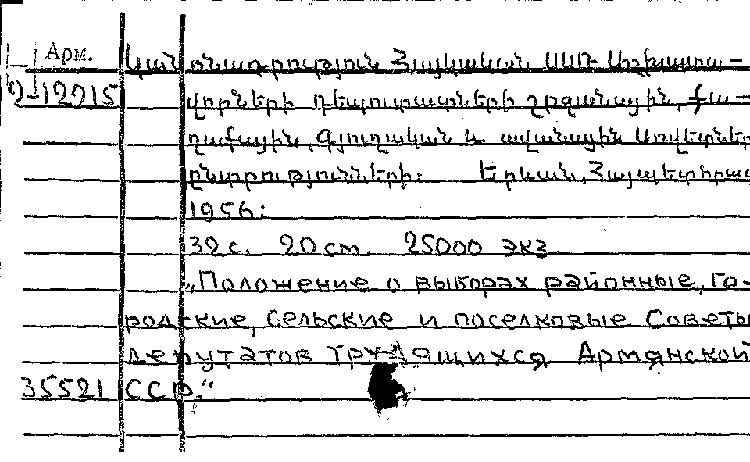 Арм. Կանոնադրություն Հայկական ՍՍՌ Աշխատա-
2-12715 վորների դեպուտատների շրջանային, քա-
ղաքային, գյուղական և ավանային Սովետների
ընտրությունների: Երևան, Հայպետհրատ
1956:
32 с. 20 cm. 25000 экз
„Положение о выборах районные, го-
родские, сельские и поселковые Советы
депутатов трудящихся Армянской
35521 ССР.“